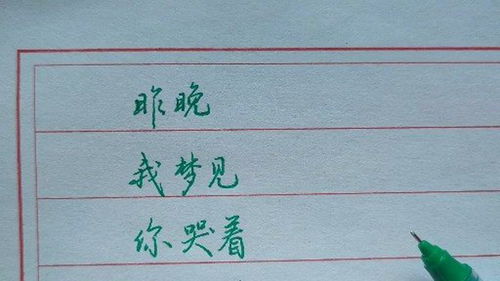 昨晚
我梦见
你哭着